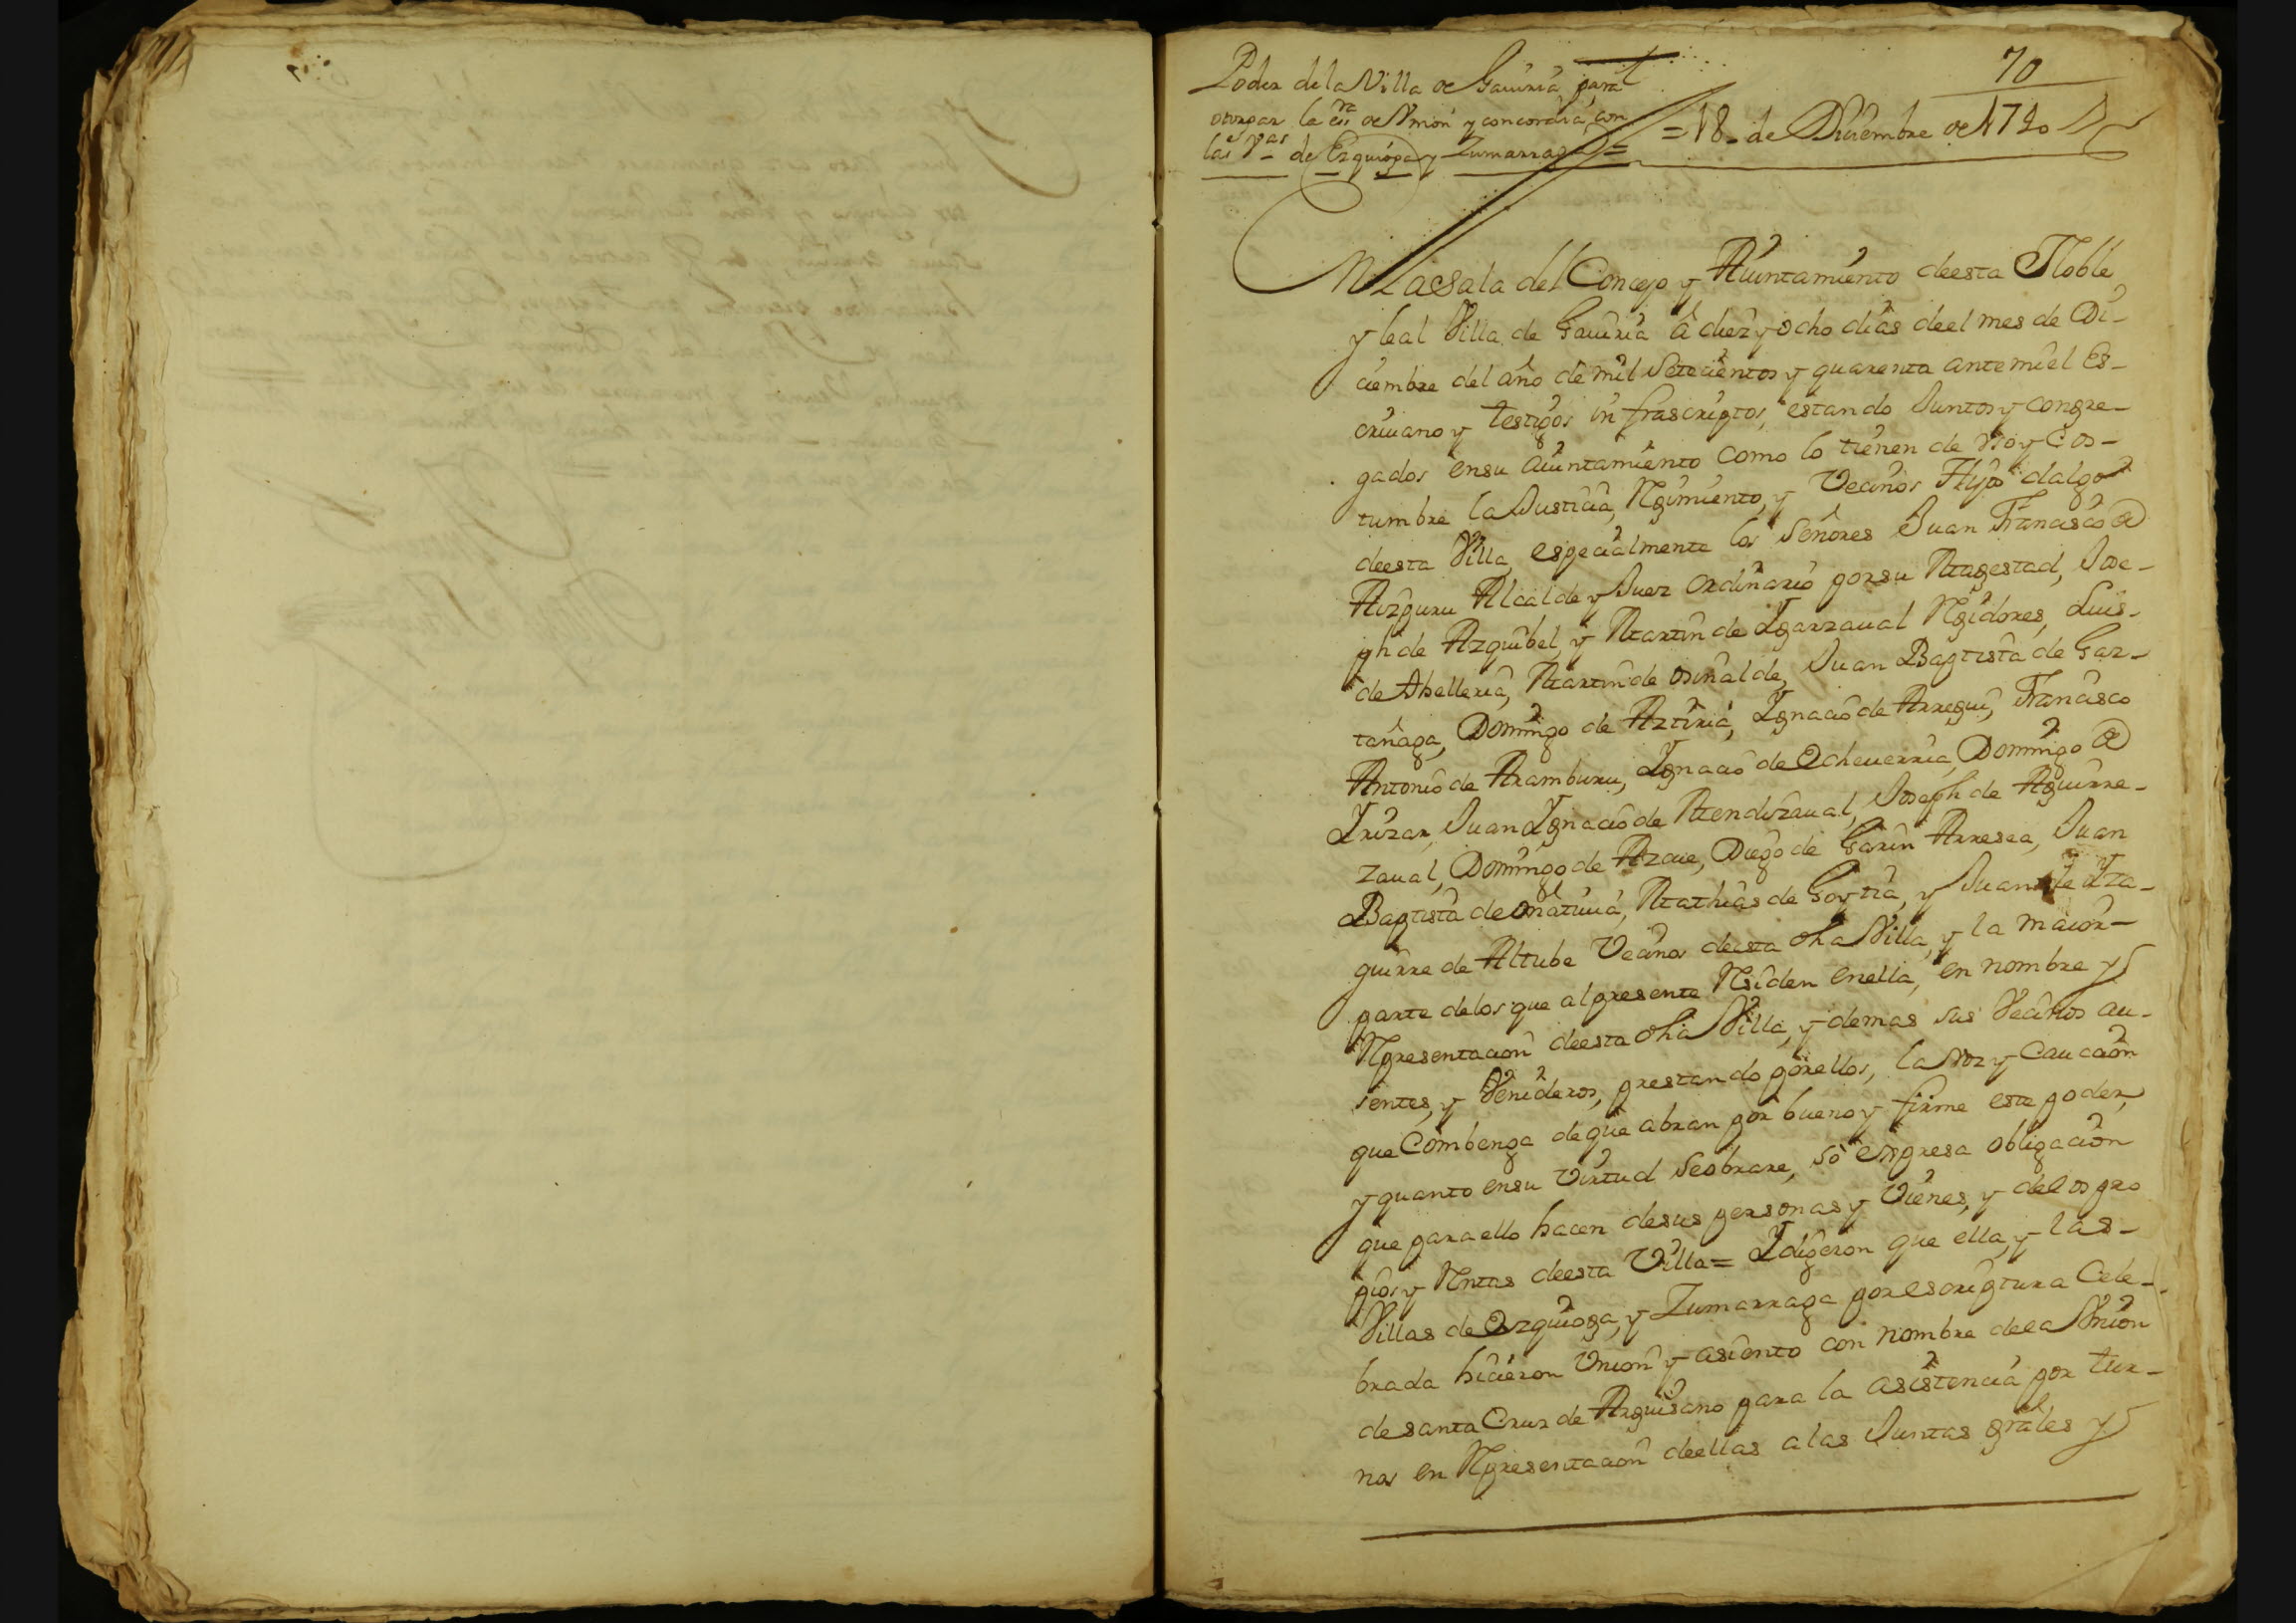 70
Poder dela Villa de Gauiria para
otorgar la essra de Vnion y concordia con
las Vas de Ezquioga y Zumarraga =
= 18 de Diciembre de 1740
En La Sala del Concejo y Aiuntamiento deesta Noble
y leal Villa de Gauiria â diez y ocho dias deel mes de Di-
ciembre del año de mil Setecientos y quarenta ante mi el Es-
criuano y testigos infrascriptos, estando Juntos y congre-
gados ensu aiuntamiento como lo tienen de vso y Cos-
tumbre la Justicia, Rgimiento, y Vecinos Hijos dalgo
deesta Villa, especialmente los Señores Juan Francisco de
Aizpuru Alcalde y Juez ordinario porsu Magestad, Jose-
ph de Azquibel, y Martin de Igarzaual Rgidores, Luis-
de Abelleria, Martin de osinalde, Juan Baptista de Gar-
tañaga, Domingo de Aztiria, Ignacio de Arregui, Francisco
Antonio de Aramburu, Ignacio de Echeuerria, Domingo de
Irizar, Juan Ignacio de Mendizaual, Joseph de Aguirre-
zaual, Domingo de Azcue, Diego de Garin Arresea, Juan
Baptista de oñatiuia, Mathias de Goytia, y Juan de Iza-
guirre de Altube Vecinos deesta dha Villa, y la maior-
parte delos que alpresente Rsiden enella, en nombre y
Rpresentacion deesta dha Villa, y demas sus Vecinos au-
sentes, y Venideros, prestando porellos, la Voz y Caucion
que Combenga deque abran por bueno y firme este poder,
y quanto ensu Virtud Seobrare, so expresa obligacion
que paraello hacen desus personas y Vienes, y delos pro
pios y Rntas deesta Villa = I digeron que ella, y las-
Villas de Ezquioga, y Zumarraga porescriptura Cele-
brada hicieron Vnion y asiento con nombre dela Vnion
de santa Cruz de Arguisano para la asistencia por tur-
nos en Rpresentacion deellas alas Juntas grales y